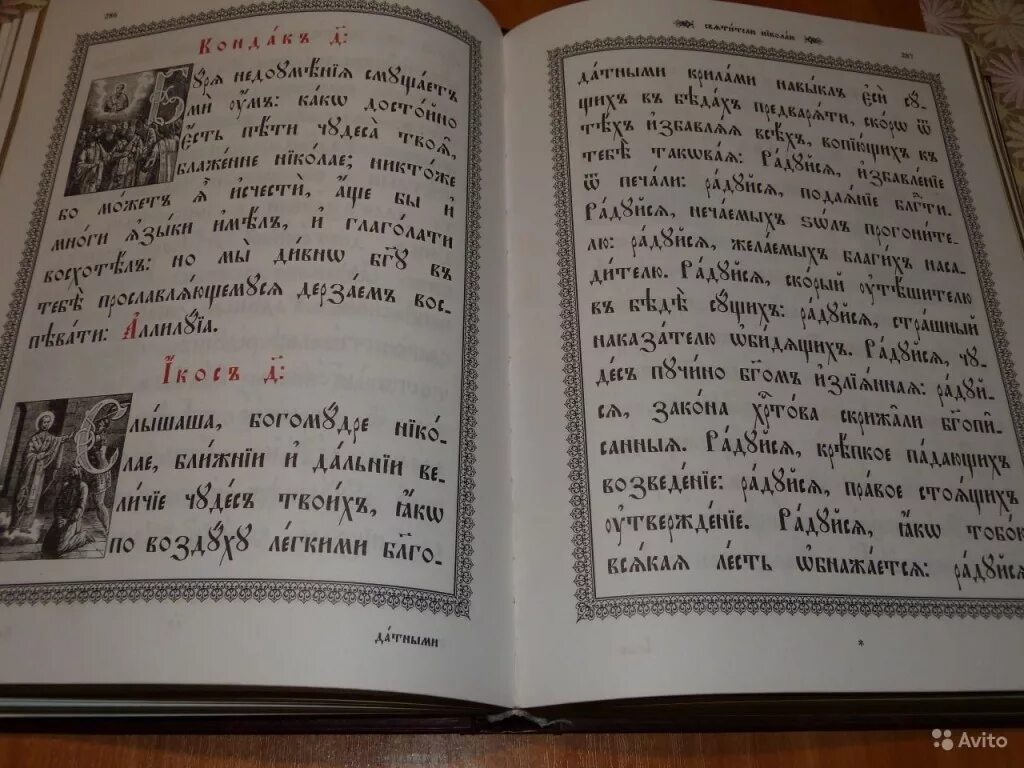 286
Конда́къ д҃:
Бꙋ́рѧ недоꙋмѣ́нїѧ смꙋща́етъ
ми ᲂу҆́мъ: ка́кѡ досто́йно
є҆́сть пѣ́ти чꙋдеса̀ твоѧ̑,
блаже́нне нїко́лае; никто́же
бо мо́жетъ ѧ҆̀ и҆счестѝ, а҆́ще бы и҆
мнѡ́ги ѧ҆зы́ки и҆мѣ́лъ, и҆ глаго́лати
восхотѣ́лъ: но мы̀ ди́внѡ бг҃ꙋ въ
тебѣ̀ прославлѧ́ющемꙋсѧ дерза́емъ вос-
пѣва́ти: А҆ллилꙋ́їа.
І҆́косъ д҃:
Слы́шаша, богомꙋ́дре нїко́-
лае, бли́жнїи и҆ да́льнїи ве-
ли́чїе чꙋде́съ твои́хъ, ꙗ҆́кѡ
по воздꙋ́хꙋ ле́гкими бл҃года́-
да́тными
свѧти́телю нїко́лаю
287
да́тными крила́ми навы́клъ є҆сѝ сꙋ́-
щихъ въ бѣда́хъ предварѧ́ти, ско́рѡ ѿ
тѣ́хъ и҆збавлѧ́ѧ всѣ́хъ, вопїю́щихъ къ
тебѣ̀ такѡва́ѧ: Ра́дꙋйсѧ, и҆збавле́нїе
ѿ печа́ли: ра́дꙋйсѧ, подаѧ́нїе блг҃ти.
Ра́дꙋйсѧ, неча́емыхъ ѕѡ́лъ прогони́те-
лю: ра́дꙋйсѧ, жела́емыхъ благи́хъ наса-
ди́телю. Ра́дꙋйсѧ, ско́рый ᲂу҆тѣ́шителю
въ бѣдѣ̀ сꙋ́щихъ: ра́дꙋйсѧ, стра́шный
наказа́телю ѡ҆би́дѧщихъ. Ра́дꙋйсѧ, чꙋ-
де́съ пꙋчи́но бг҃омъ и҆злїѧ́ннаѧ: ра́дꙋй-
сѧ, зако́на хрⷭ҇то́ва скрижа́ли бг҃опи́-
санныѧ. Ра́дꙋйсѧ, крѣ́пкое па́дающихъ
возведе́нїе: ра́дꙋйсѧ, пра́вое стоѧ́щихъ
ᲂу҆твержде́нїе. Ра́дꙋйсѧ, ꙗ҆́кѡ тобо́ю
всѧ́каѧ ле́сть ѡ҆бнажа́етсѧ: ра́дꙋйсѧ
*
Avito